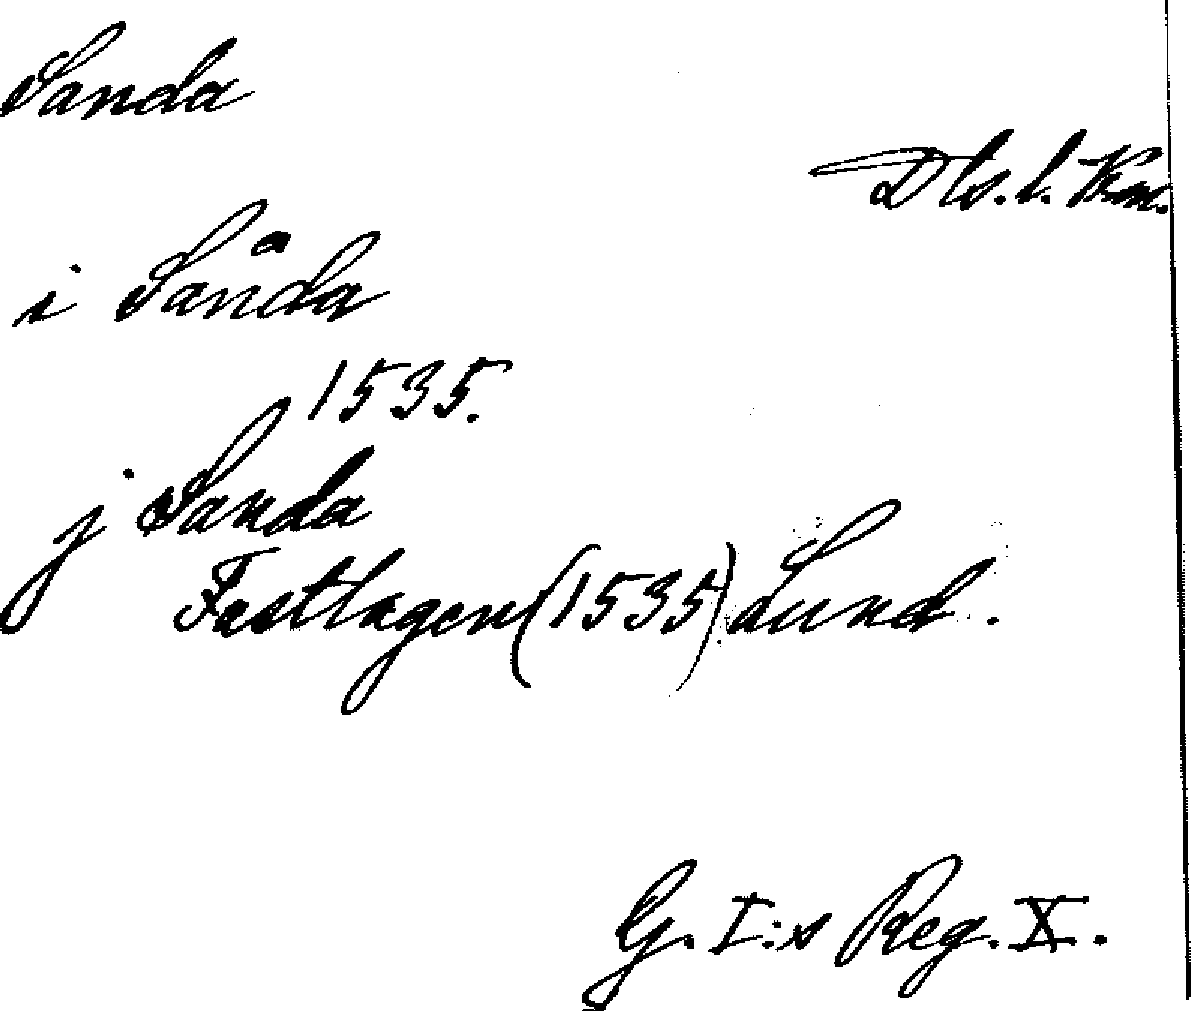 Sanda
Dls. l. Km.
i Sanda
a
1535.
j Sanda
Fastlagen (1535) Lund.
G. I:s Reg. X.